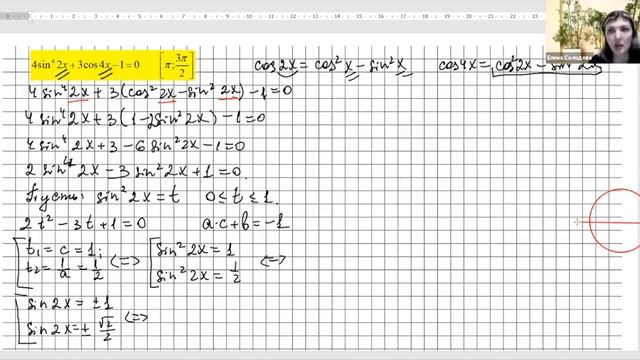 4sin⁴ 2x + 3cos 4x − 1 = 0 [π; 3π/2]
cos2x = cos²x − sin²x
cos4x = cos²2x − sin²2x
4 sin⁴ 2x + 3(cos² 2x − sin² 2x) − 1 = 0
4 sin⁴ 2x + 3(1 − 2sin² 2x) − 1 = 0
4 sin⁴ 2x + 3 − 6 sin² 2x − 1 = 0
2 sin⁴ 2x − 3 sin² 2x + 1 = 0.
Пусть: sin² 2x = t 0 ≤ t ≤ 1.
2t² − 3t + 1 = 0 a·c + b = −1
[ t₁ = c = 1; <=> [ sin² 2x = 1 <=>
t₂ = 1/a = 1/2 sin² 2x = 1/2
[ sin 2x = ± 1 <=>
sin 2x = ± √2/2
Елена Солодова